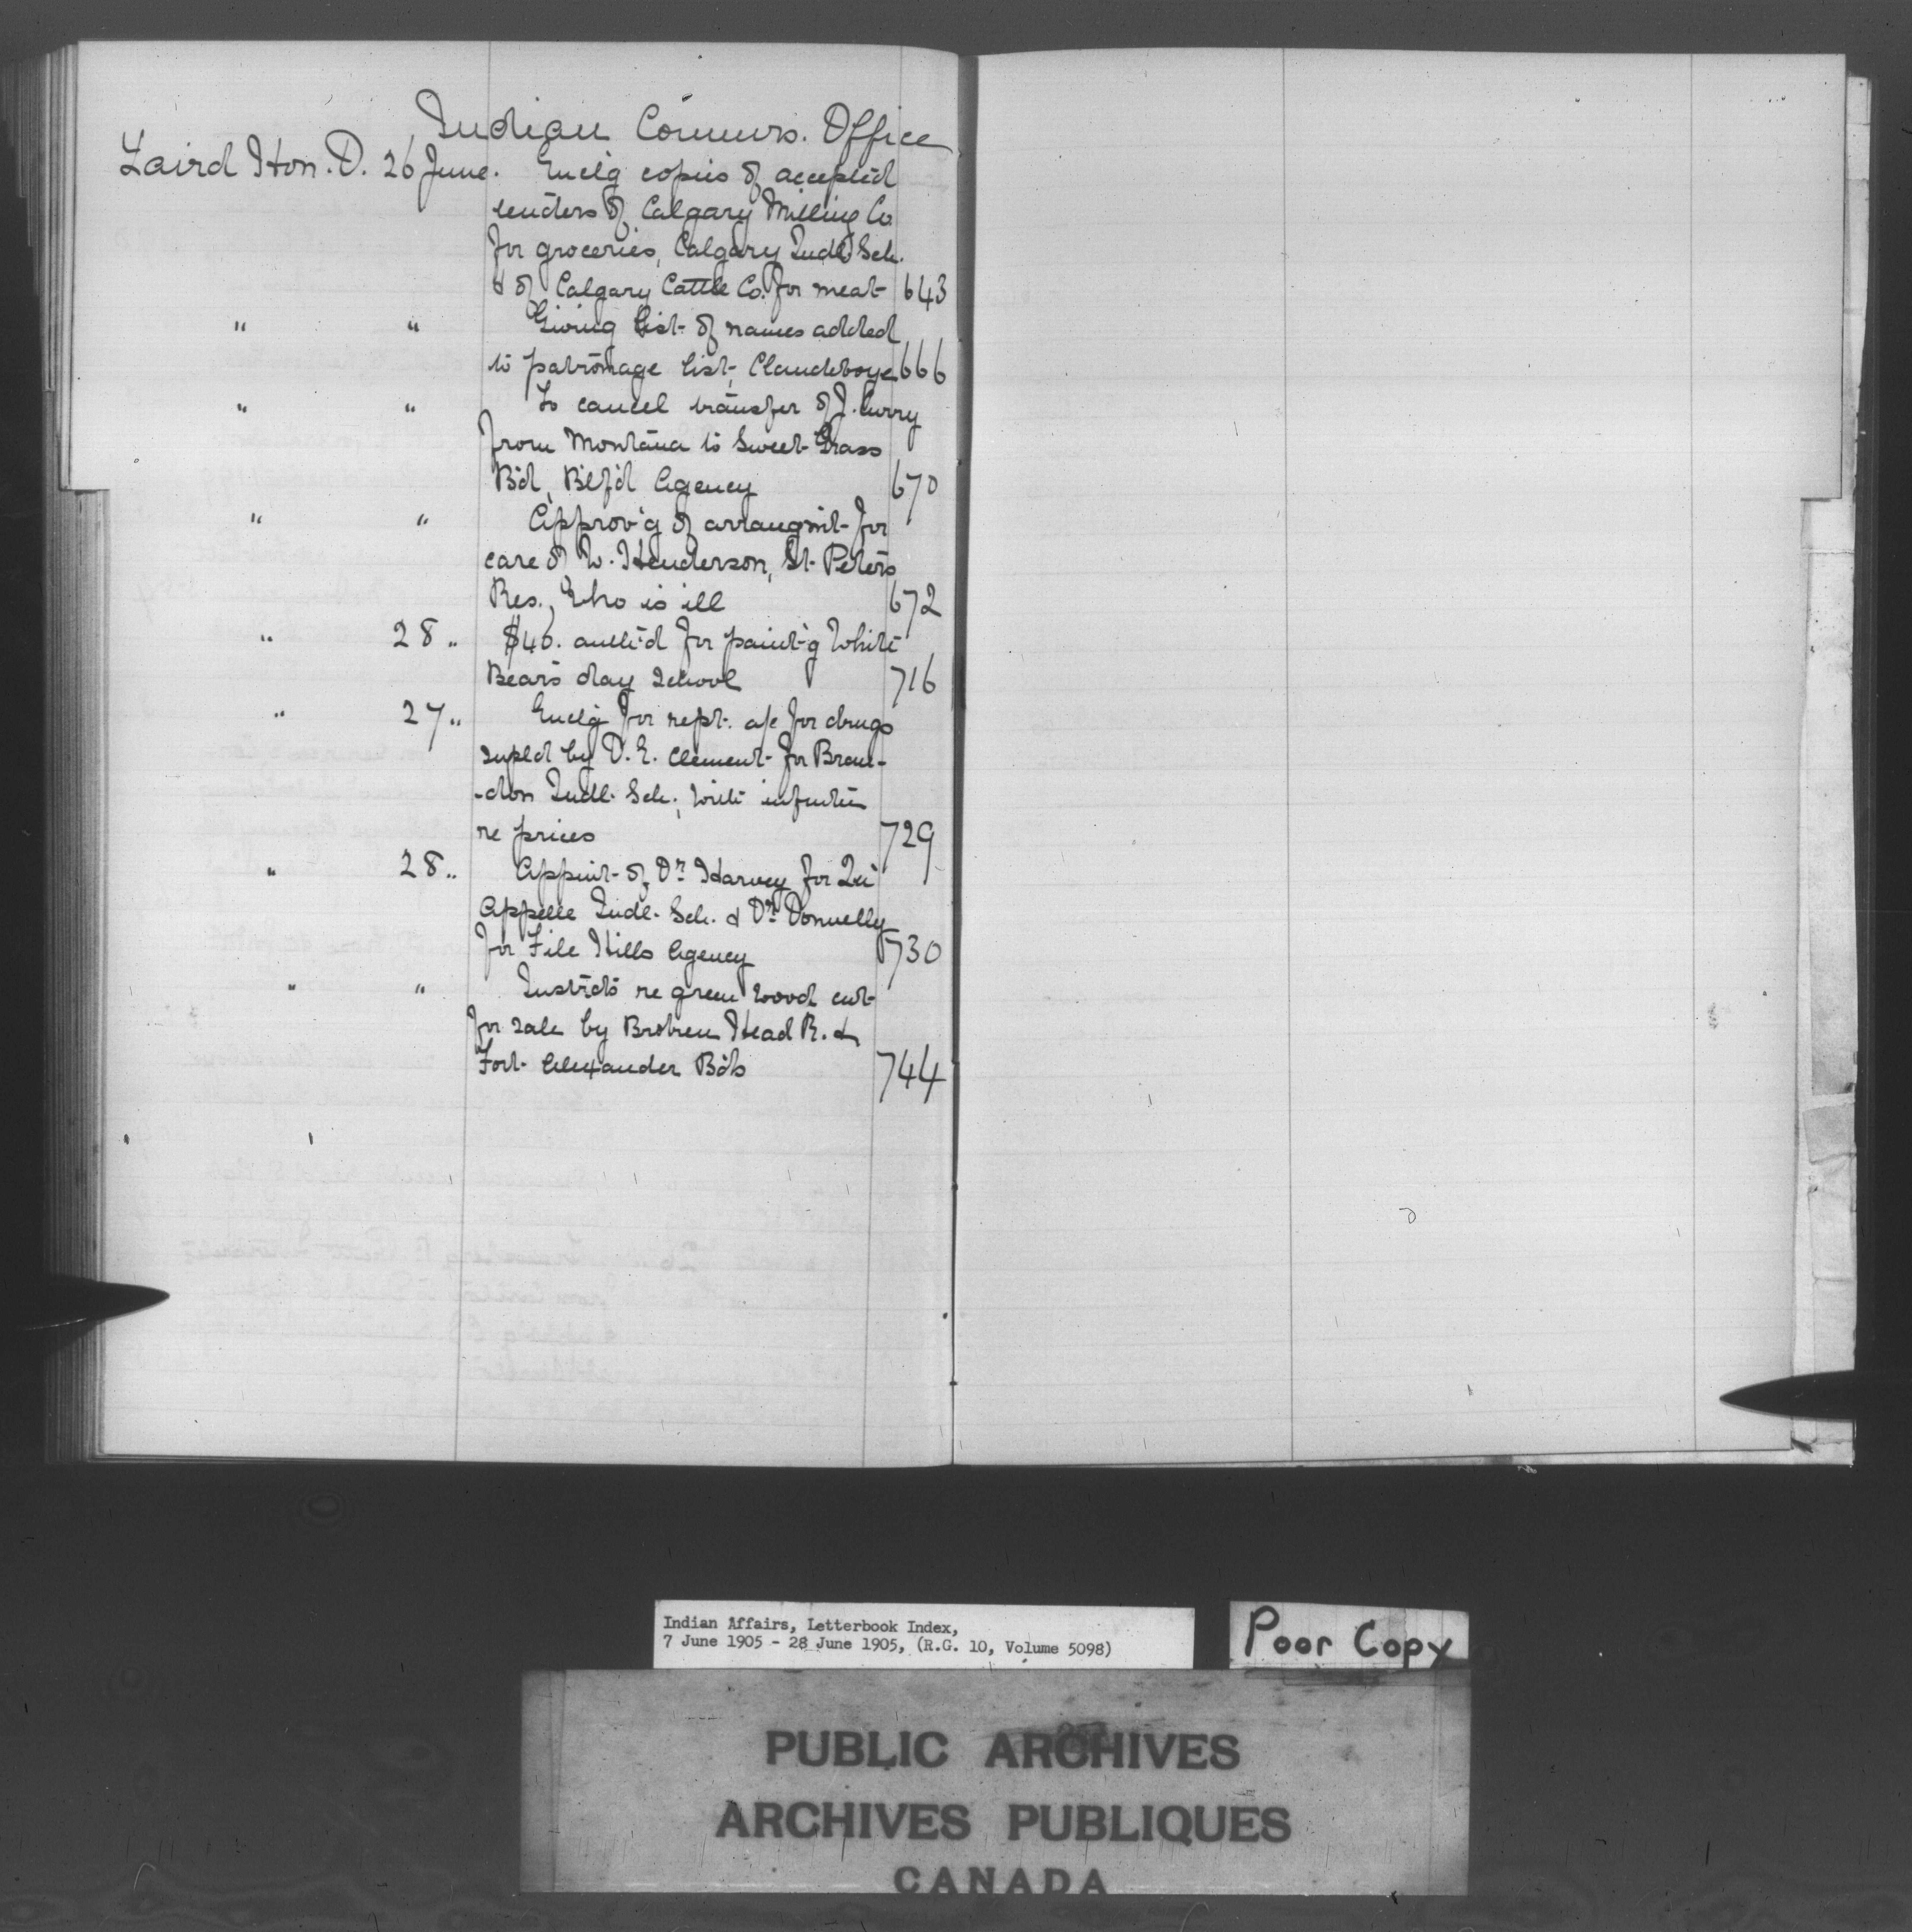 Indian Commrs. Office
Laird Hon. D. 26 June. Enclg copies of accepted
tenders of Calgary Milling Co.
for groceries, Calgary Indl. Sch.
& of Calgary Cattle Co. for meat 643
" " Giving list of names added
to patronage list, Clandeboye 666
" " To cancel transfer of J. Curry
from Montana to Sweet Grass
B'd, Btlf'd Agency 670
" " Approv'g of arrangmt for
care of W. Henderson, St. Peters
Res., who is ill 672
" 28 " $40. auth'd for paint'g White
Bears day school 716
" 27 " Enclg for rept. a/c for drugs
supld by D. E. Clement for Bran-
-don Indl. Sch.,
re prices 729
" 28 " Appmt of Dr. Harvey for Qu'
Appelle Indl. Sch. & Dr. Donnelly
for File Hills Agency 730
" " Instrcts re green wood cut
for sale by Broken Head R. &
Fort Alexander Bds 744
Indian Affairs, Letterbook Index,
7 June 1905 - 28 June 1905, (R.G. 10, Volume 5098)
Poor Copy
PUBLIC ARCHIVES
ARCHIVES PUBLIQUES
CANADA